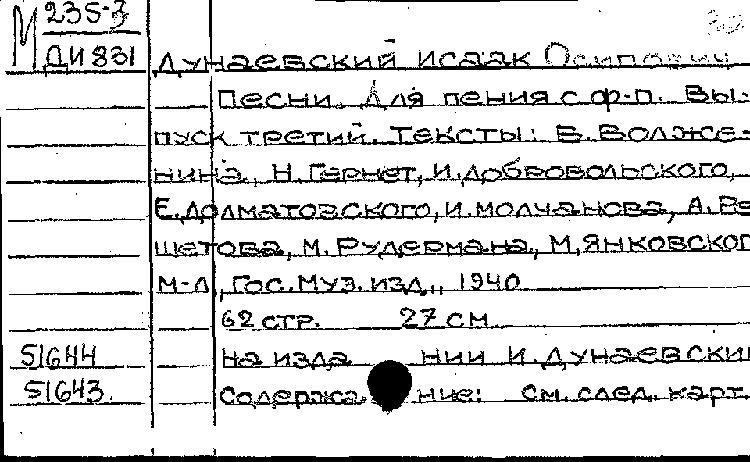 М 235-3
ДИ 831 Дунаевский Исаак Осипович
Песни. Для пения с ф-п. Вы-
пуск третий. Тексты: В. Волже-
нина, Н. Гернет, И. Добровольского,
Е. Долматовского, И. Молчанова, А. Ре
шетова, М. Рудермана, М. Янковског
М-Л, Гос. Муз. изд., 1940
62 стр. 27 см
51644 На изда нии И. Дунаевски
51643. Содержа ние: см. след. карт.